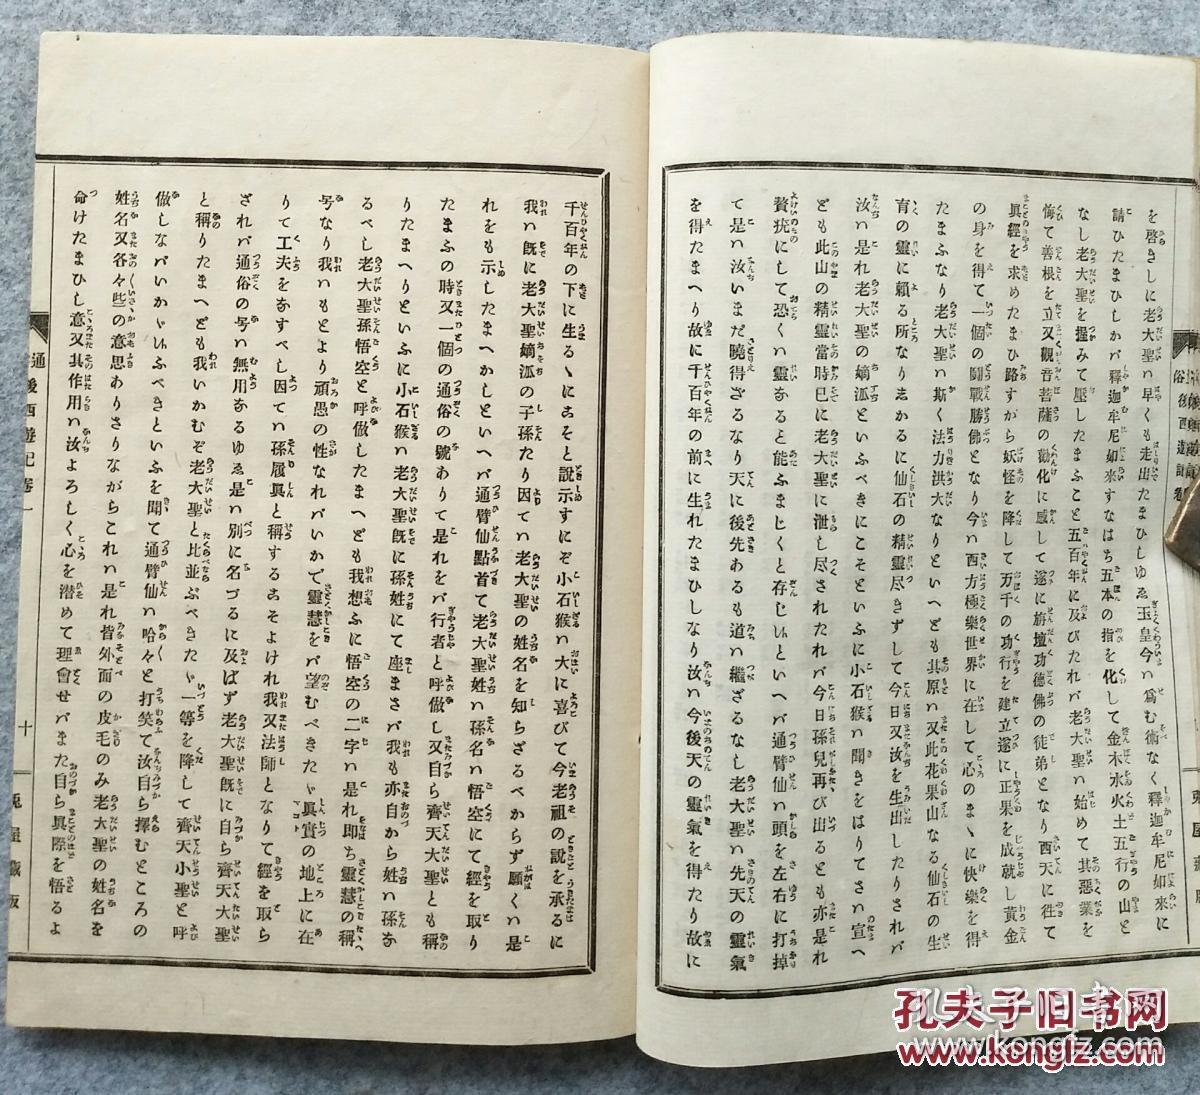 を啓きしに老大聖ハ早くも走出たまひしゆゑ玉皇今ハ爲む術なく釋迦牟尼如來に
請ひたまひしかバ釋迦牟尼如來すなはち五本の指を化して金木水火土五行の山と
なし老大聖を握みて壓したまふこと五百年に及びたれバ老大聖ハ始めて其惡業を
悔て善根を立又觀音菩薩の勸化に感して遂に旃壇功德佛の徒弟となり西天に徃て
眞經を求めたまひ路すがら妖怪を降して万千の功行を建立遂に正果を成就し黃金
の身を得て一個の鬪戰勝佛となり今ハ西方極樂世界に在して心のまゝ快樂を得
たまふなり老大聖ハ斯く法力洪大なりといへども其原ハ又此花果山なる仙石の生
育の靈に賴る所なりしかるに仙石の精靈尽きずして今日又汝を生出したりされバ
汝ハ是れ老大聖の嫡泒といふべきにこそといふに小石猴ハ聞きをはりてさハ宣へ
ども此山の精靈當時已に老大聖に泄し尽されたれバ今日孫兒再び出るとも亦是れ
贅疣にして恐くハ靈なると能ふまじくと存じ
といへバ通臂仙ハ頭を左右に打掉
て是ハ汝いまだ曉得ざるなり天に後先あるも道ハ繼ざるなし老大聖ハ先天の靈氣
を得たまへり故に千百年の前に生れたまひしなり汝ハ今後天の靈氣を得たり故に
千百年の下に生るゝにこそと說示すにぞ小石猴ハ大に喜びて今老祖の説を承るに
我ハ既に老大聖嫡泒の子孫たり因てハ老大聖の姓名を知らざるべからず願くハ是
れをも示したまへかしといへバ通臂仙點首て老大聖姓ハ孫名ハ悟空にて經を取り
たまふの時又一個の通俗の號ありて是れをバ行者と呼做し又自ら齊天大聖とも稱
りたまへりといふに小石猴ハ老大聖既に孫姓にて座まさバ我も亦自から姓ハ孫な
るべし老大聖孫悟空と呼做したまへども我想ふに悟空の二字ハ是れ即ち靈慧の稱
号なり我ハもとより頑愚の性なれバいかで靈慧をバ望むべきたゞ眞實の地上に在
りて工夫をなすべし因てハ孫履眞と稱するこそよけれ我又法師となりて經を取ら
ざれバ通俗の号ハ無用なるゆゑ是ハ別に名づるに及ばず老大聖既に自ら齊天大聖
と稱りたまへども我いかむぞ老大聖と比並ぶべきたゞ一等を降して齊天小聖と呼
做しなバいかゞ
ふべきといふを聞て通臂仙ハ哈々と打笑て汝自ら擇むところの
姓名又各々些の意思ありさりながらこれハ是れ皆外面の皮毛のみ老大聖の姓名を
命けたまひし意又其作用ハ汝よろしく心を潜めて理會せバまた自ら眞際を悟るよ
通俗後西遊記卷一
十
兎屋藏版
孔夫子旧书网
www.kongfz.com